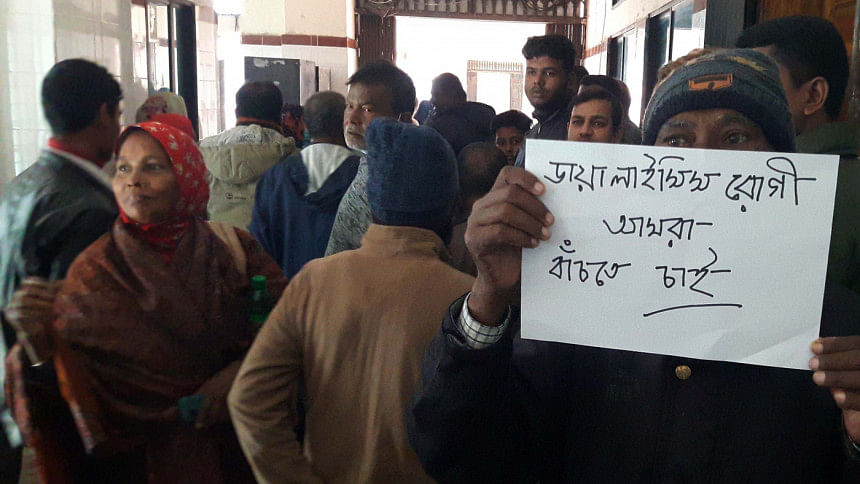 ডায়ালাইসিস রোগী
আমরা-
বাঁচতে চাই-